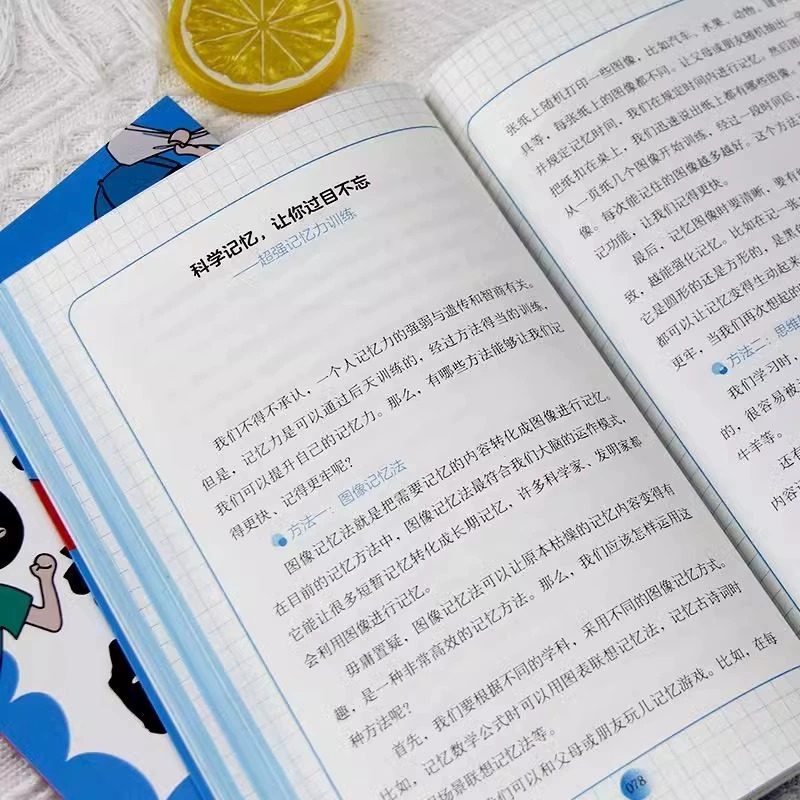 科学记忆，让你过目不忘
——超强记忆力训练
我们不得不承认，一个人记忆力的强弱与遗传和智商有关。
但是，记忆力是可以通过后天训练的，经过方法得当的训练，
我们可以提升自己的记忆力。那么，有哪些方法能够让我们记
得更快、记得更牢呢？
方法一：图像记忆法
图像记忆法就是把需要记忆的内容转化成图像进行记忆。
在目前的记忆方法中，图像记忆法最符合我们大脑的运作模式，
它能让很多短暂记忆转化成长期记忆，许多科学家、发明家都
会利用图像进行记忆。
毋庸置疑，图像记忆法可以让原本枯燥的记忆内容变得有
趣，是一种非常高效的记忆方法。那么，我们应该怎样运用这
种方法呢？
首先，我们要根据不同的学科，采用不同的图像记忆方式。
比如，记忆数学公式时可以用图表联想记忆法，记忆古诗词时
场景联想记忆法等。
我们可以和父母或朋友玩儿记忆游戏。比如，在每
078
张纸上随机打印一些图像，比如汽车、水果、动物、
具等，每张纸上的图像都不同。让父母或朋友随机抽出一
并规定记忆时间，我们在规定时间内进行记忆。然后
把纸扣在桌上，我们迅速说出纸上都有哪些图像。
从一页纸几个图像开始训练，经过一段时间后，
像。每次能记住的图像越多越好。这个方法
记功能，让我们记得更快。
最后，记忆图像时要清晰，要有
致，越能强化记忆。比如在记一张
它是圆形的还是方形的，是黑
都可以让记忆变得生动起来
更牢，当我们再次想起的
方法二：思维
我们学习时，
的，很容易被
牛羊等。
还有
内容